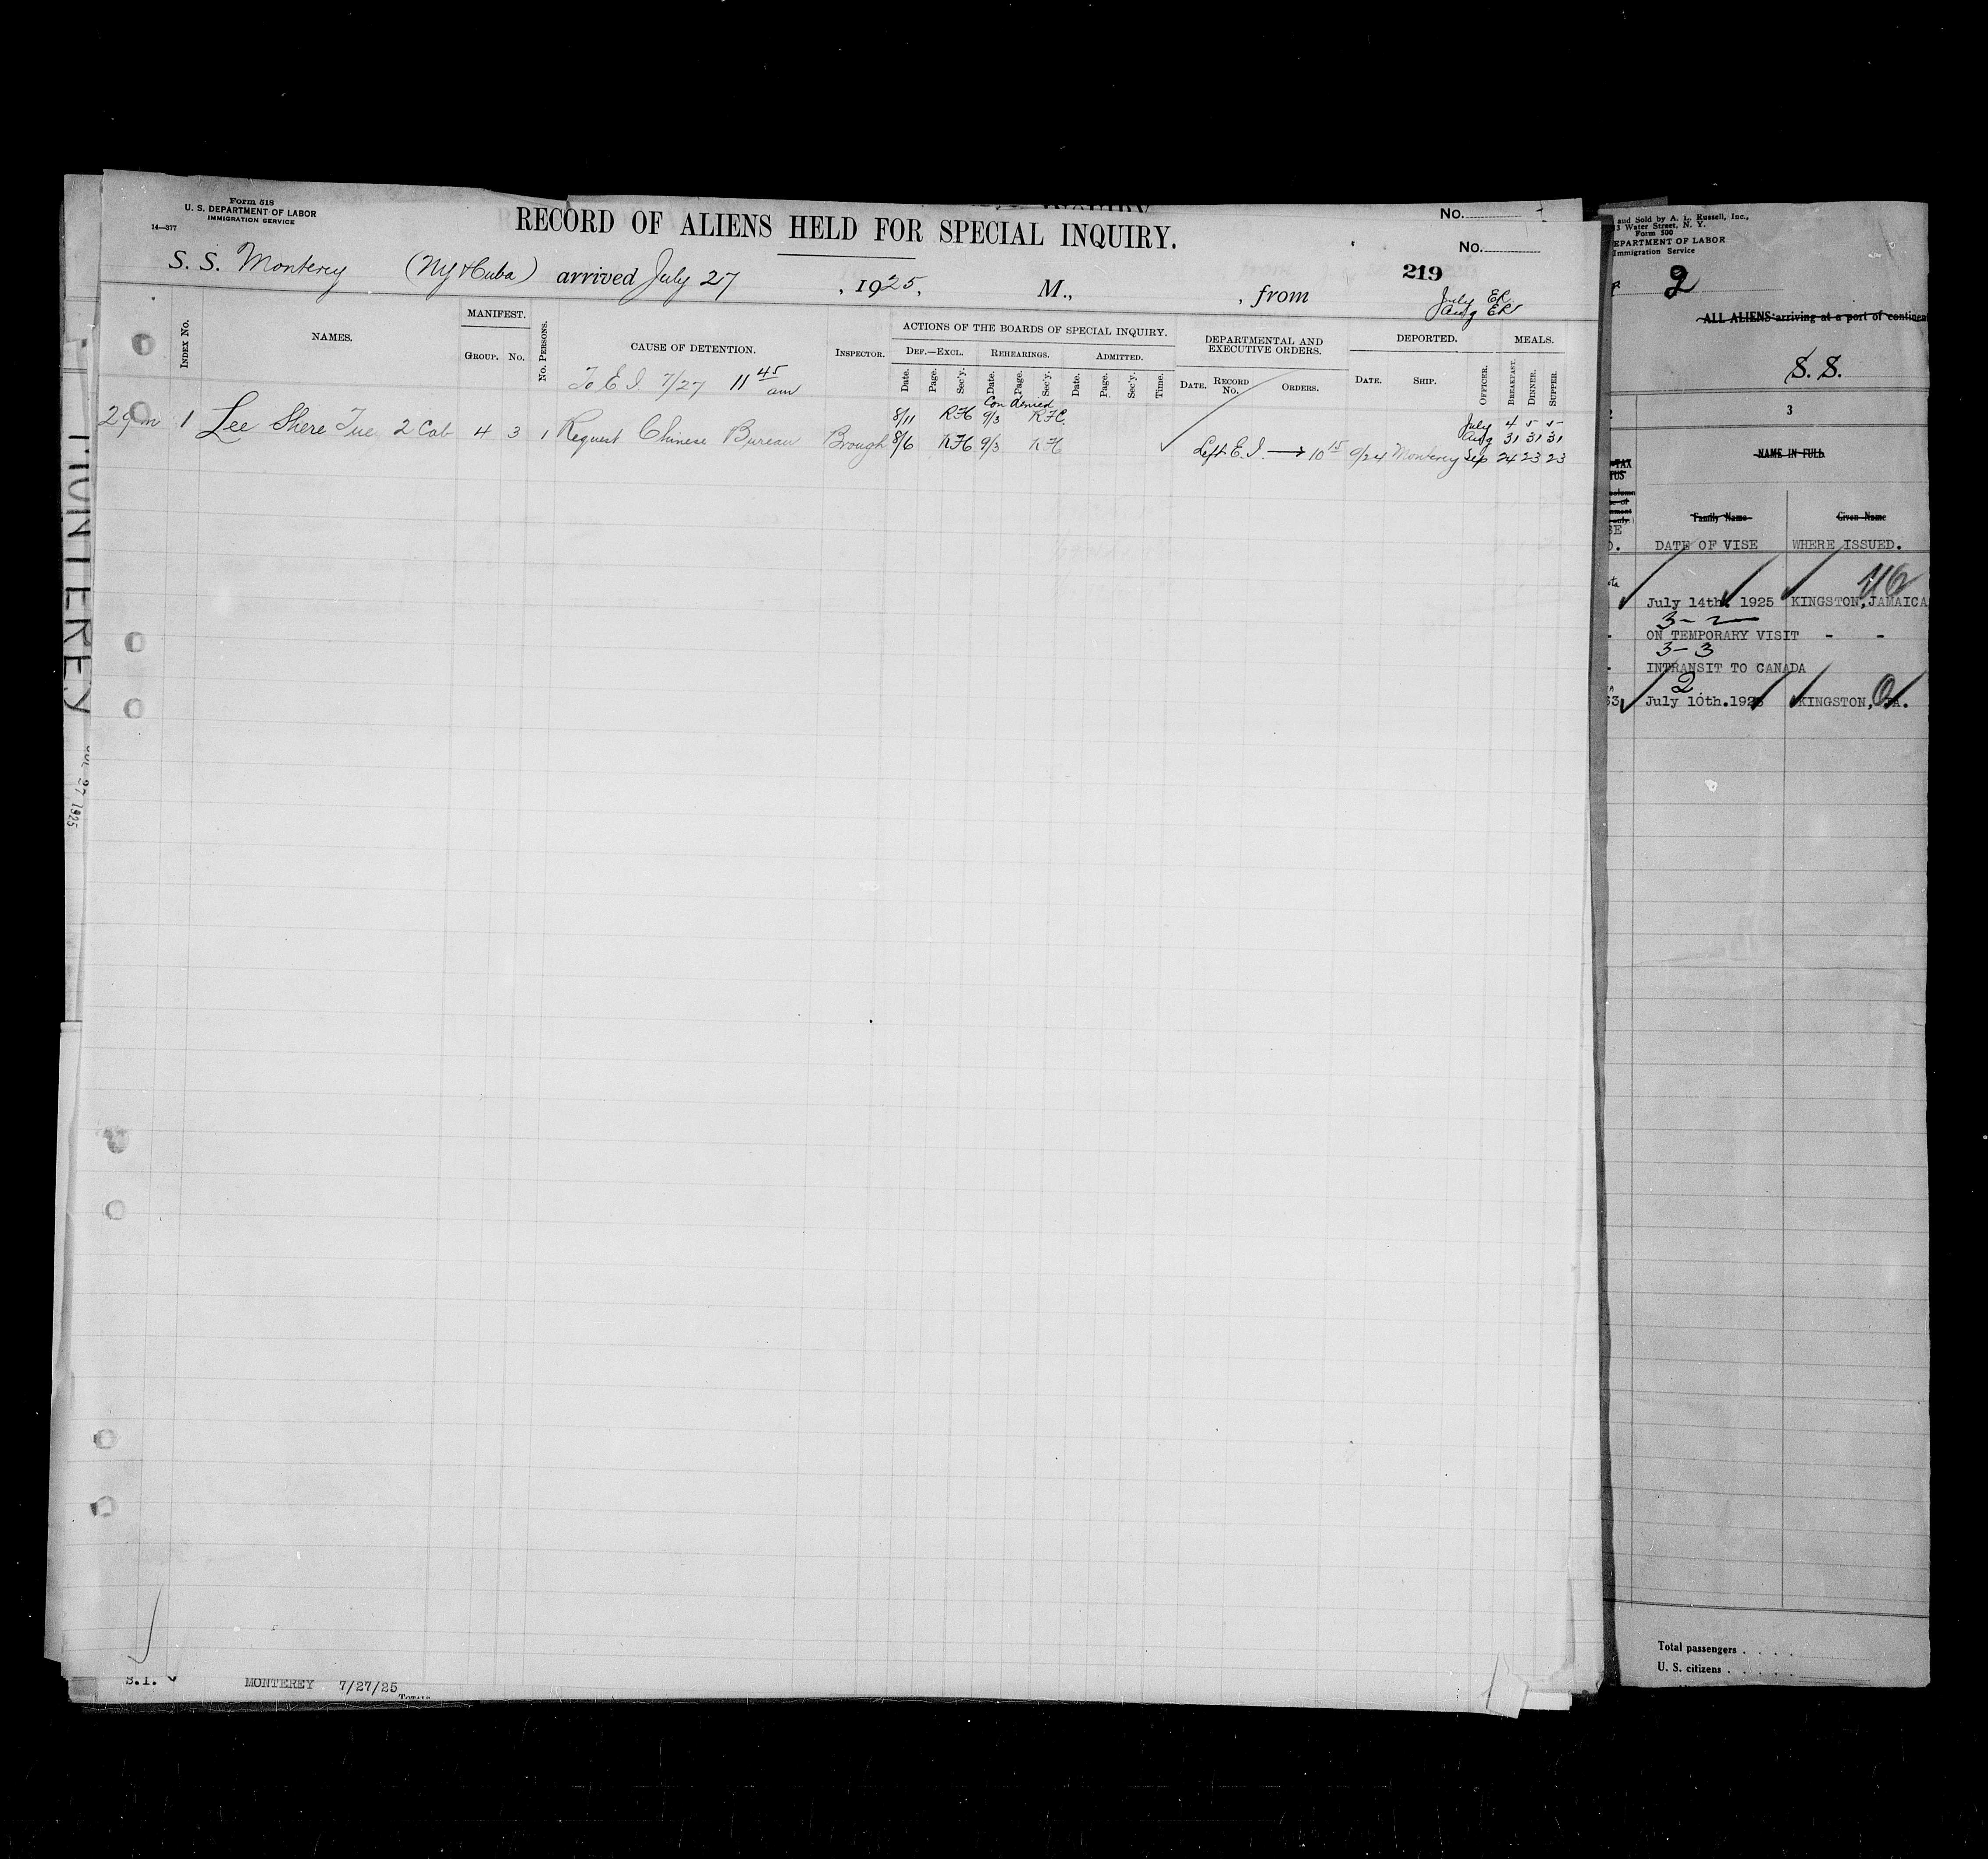 Form 518
U. S. DEPARTMENT OF LABOR
IMMIGRATION SERVICE
14—377
No.
RECORD OF ALIENS HELD FOR SPECIAL INQUIRY.
No.
219
S. S. Monterey (NY & Cuba) arrived July 27, 1925, M., , from
July ER
Aug ER
INDEX No.
NAMES.
MANIFEST.
GROUP. No.
No. PERSONS.
CAUSE OF DETENTION.
INSPECTOR.
ACTIONS OF THE BOARDS OF SPECIAL INQUIRY.
DEF.—EXCL. REHEARINGS. ADMITTED.
Date. Page. Sec'y. Date. Page. Sec'y. Date. Page. Sec'y. Time.
DEPARTMENTAL AND
EXECUTIVE ORDERS.
DATE. RECORD No. ORDERS.
DEPORTED.
DATE. SHIP. OFFICER.
MEALS.
BREAKFAST. DINNER. SUPPER.
To E I 7/27 11 45 am
Con denied
8/11 RH 9/3 RFC. July 4 5 5
29 m 1 Lee Shere Tue 2 Cab 4 3 1 Request Chinese Bureau Brough 8/6 RH 9/3 RH Aug 31 31 31
Left E. I. → 10 15 9/24 Monterey Sep 24 23 23
MONTEREY
JUL 27 1925
S.I. MONTEREY 7/27/25
TOTALS
and Sold by A. L. Russell, Inc.,
Water Street, N. Y.
Form 500
DEPARTMENT OF LABOR
Immigration Service
2
ALL ALIENS arriving at a port of continen
S. S.
3
NAME IN FULL
Family Name Given Name
DATE OF VISE WHERE ISSUED.
July 14th. 1925 KINGSTON, JAMAICA
3-2
ON TEMPORARY VISIT - -
3-3
INTRANSIT TO CANADA
2
July 10th.1925 KINGSTON, JA.
Total passengers . . . .
U. S. citizens . . . . .